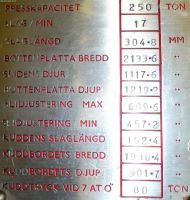 PRESSKAPACITET 250 TON
SLAG/MIN 17
SLAGLÄNGD 304·8 MM
BOTTENPLATTA BREDD 2133·6 "
DJUP 1117·6 "
BOTTENPLATTA DJUP 1219·2 "
SLIDJUSTERING MAX 609·6 "
SLIDJUSTERING MIN 457·2 "
KUDDENS SLAGLÄNGD 152·4 "
KUDDBORDETS BREDD "
KUDDBORDETS DJUP 901·7 "
KUDDTRYCK VID 7 ATÖ 80 TON